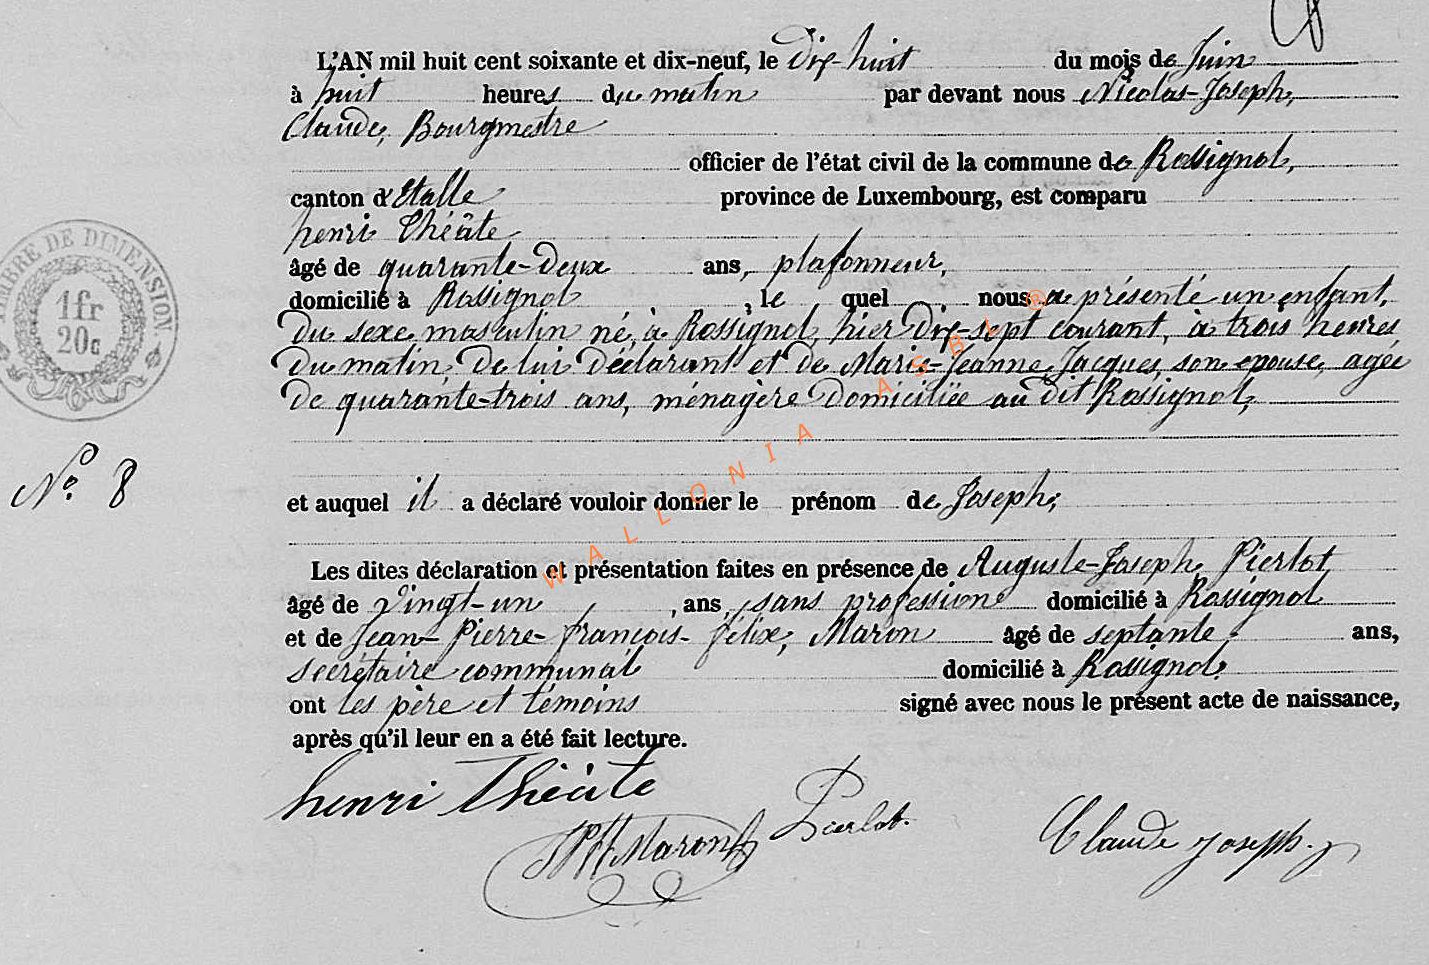 L'AN mil huit cent soixante et dix-neuf, le Dix-huit du mois de Juin
à huit heures du matin par devant nous Nicolas-Joseph,
Claude, Bourgmestre
officier de l'état civil de la commune de Rossignol,
canton d'Etalle province de Luxembourg, est comparu
henri Théâte
âgé de quarante-Deux ans, plafonneur,
domicilié à Rossignol, le quel nous a présenté un enfant,
Du sexe masculin né, à Rossignol, hier Dix-sept courant, à trois heures
Du matin De lui Déclarant et de Marie-Jeanne Jacques, son epouse, agée
De quarante-trois ans, ménagère Domiciliée au dit Rossignol,
No. 8
et auquel il a déclaré vouloir donner le prénom de Joseph;
Les dites déclaration et présentation faites en présence de Auguste-Joseph Pierlot
âgé de vingt-un, ans, sans profession domicilié à Rossignol
et de Jean-Pierre-françois-félix, Maron âgé de septante ans,
secrétaire communal domicilié à Rossignol.
ont les père et témoins signé avec nous le présent acte de naissance,
après qu'il leur en a été fait lecture.
henri Théâte
Maron Pierlot. Claude Joseph.
TIMBRE DE DIMENSION
1fr
20c
WALLONIA ASBL ®